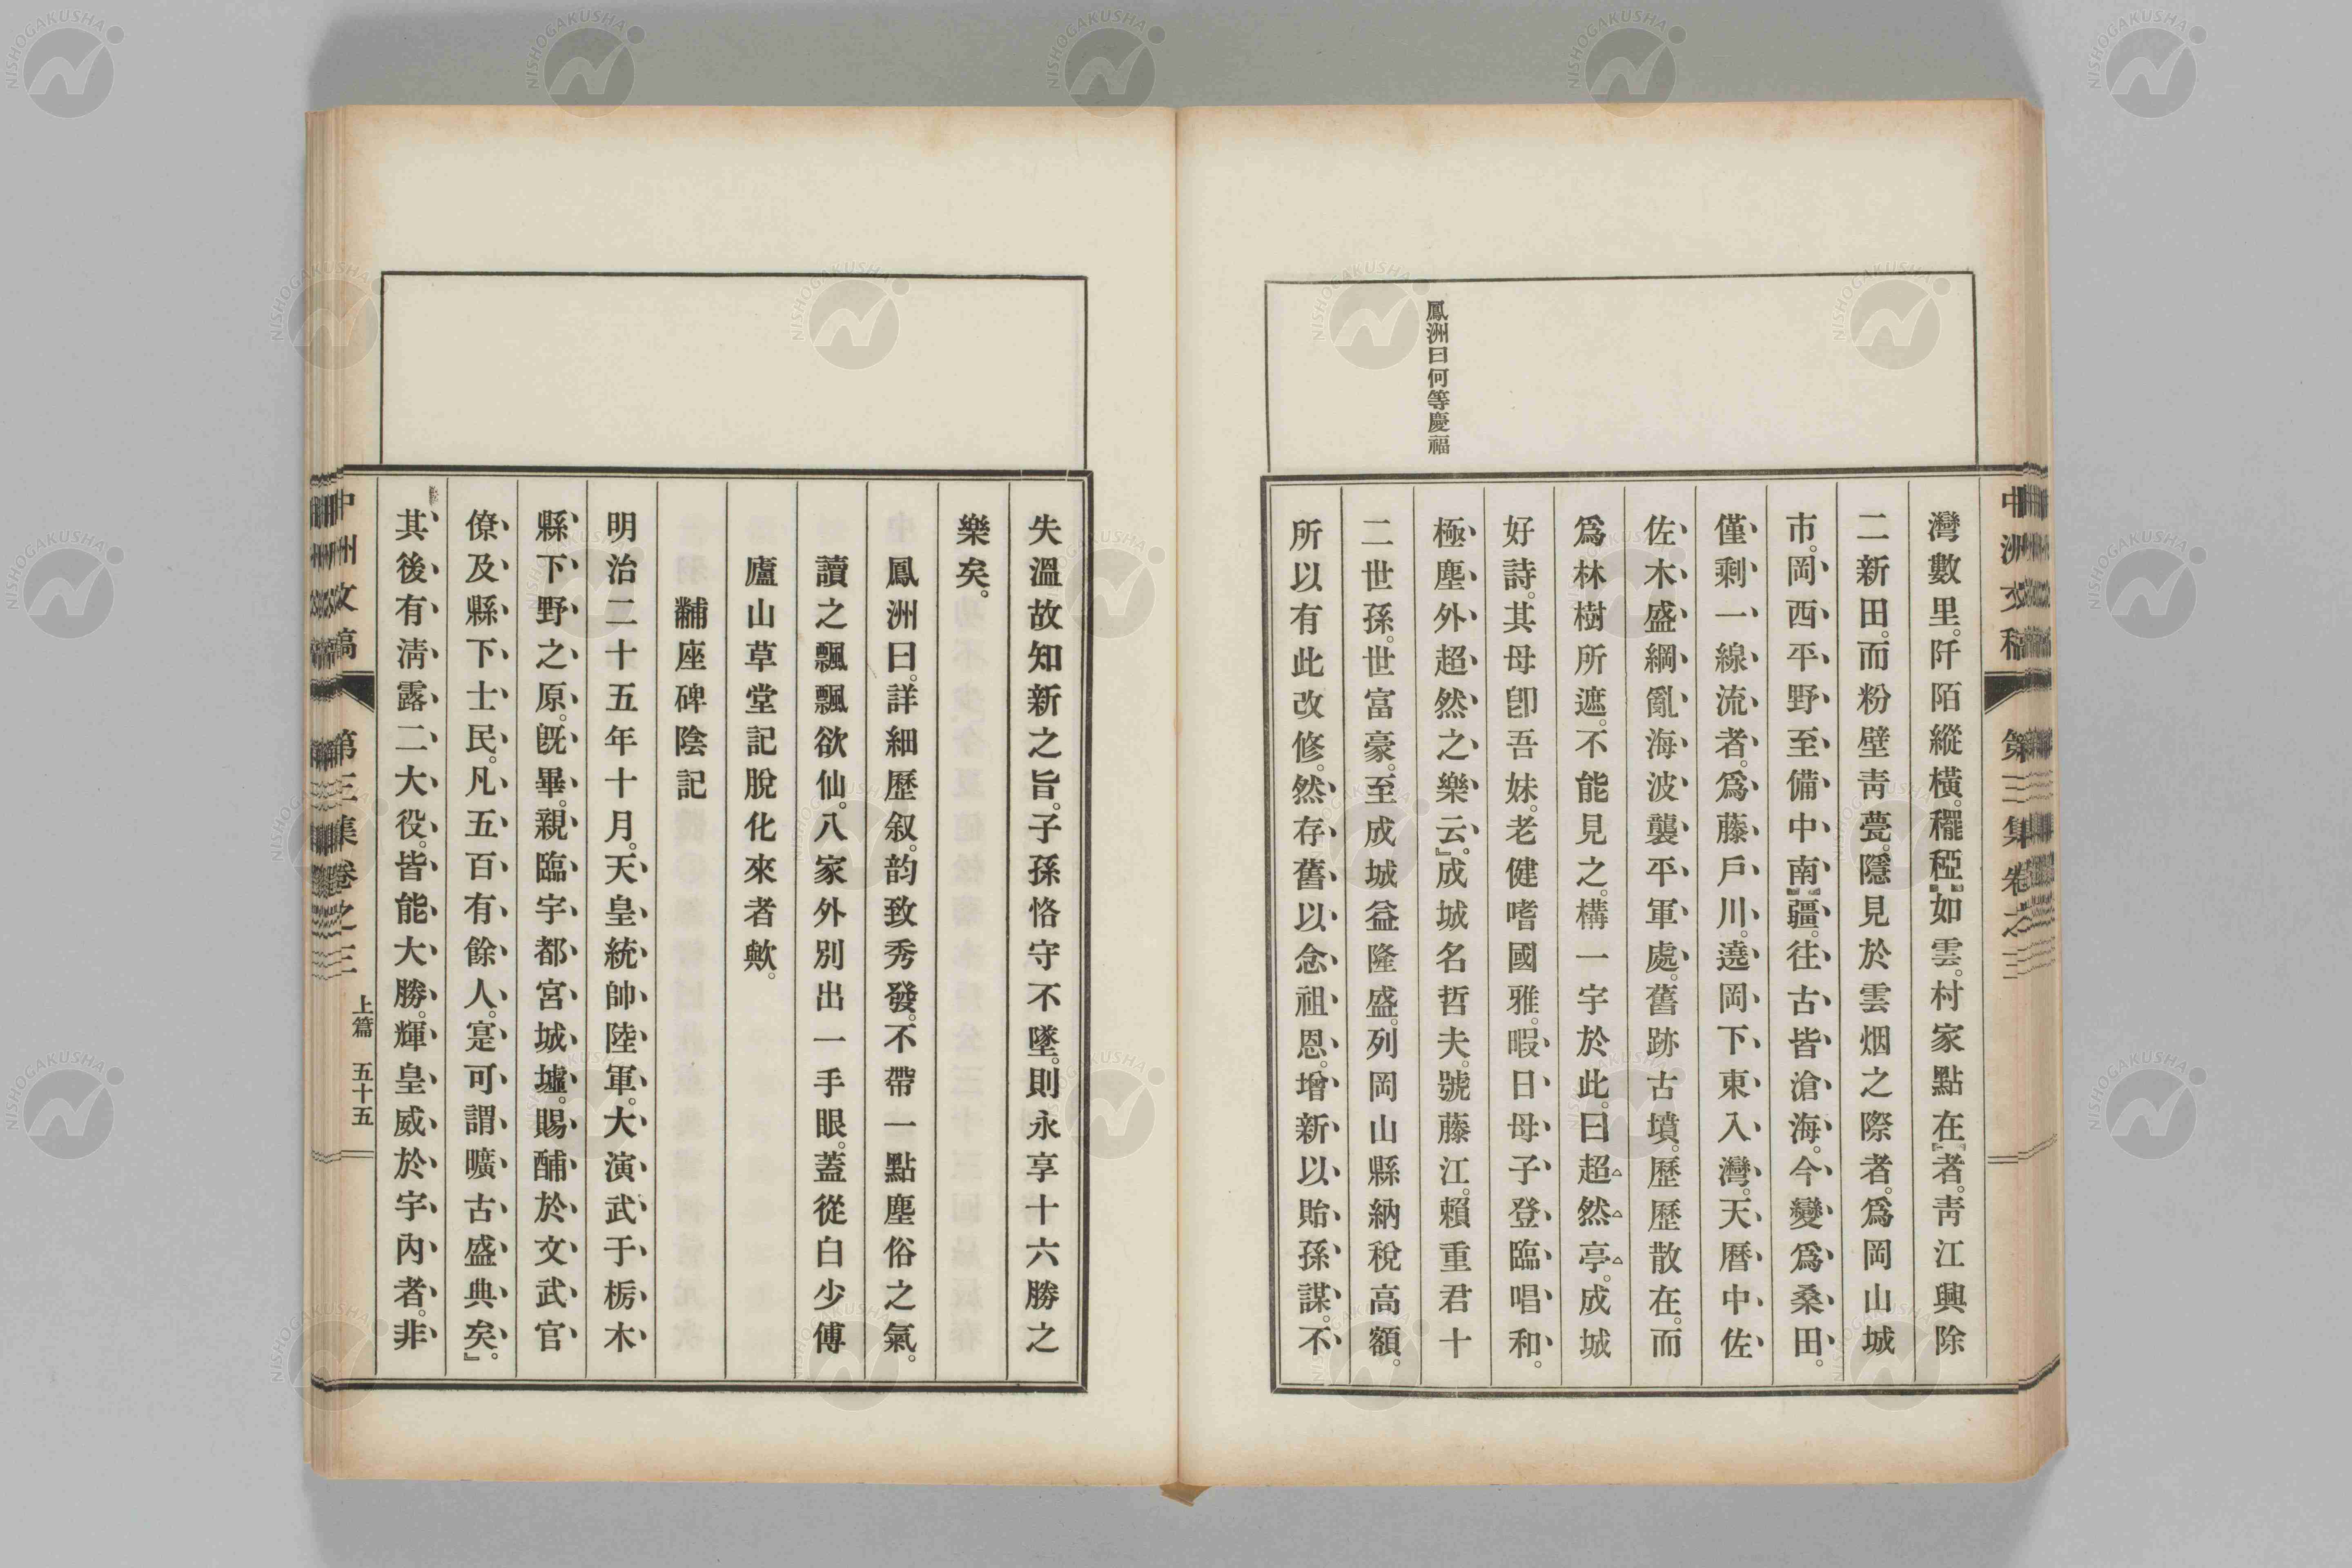 中洲文稿 第三集卷之三
鳳洲曰何等慶福
灣數里。阡陌縱橫。穲稏如雲。村家點在者。靑江興除
二新田。而粉壁靑甍。隱見於雲烟之際者。爲岡山城
市。岡西平野至備中南疆。往古皆滄海。今變爲桑田。
僅剩一線流者。爲藤戶川。遶岡下東入灣。天曆中佐
佐木盛綱亂海波襲平軍處。舊跡古墳。歷歷散在。而
爲林樹所遮。不能見之。構一宇於此。曰超然亭。成城
好詩。其母卽吾妹。老健嗜國雅。暇日母子登臨唱和。
極塵外超然之樂云。』成城名哲夫。號藤江。賴重君十
二世孫。世富豪。至成城益隆盛。列岡山縣納稅高額。
所以有此改修。然存舊以念祖恩。增新以貽孫謀。不
失溫故知新之旨。子孫恪守不墜。則永享十六勝之
樂矣。
鳳洲曰。詳細歷叙。韵致秀發。不帶一點塵俗之氣。
讀之飄飄欲仙。八家外別出一手眼。蓋從白少傅
廬山草堂記脫化來者歟。
黼座碑陰記
明治二十五年十月。天皇統帥陸軍。大演武于栃木
縣下野之原。旣畢。親臨宇都宮城墟。賜酺於文武官
僚及縣下士民。凡五百有餘人。寔可謂曠古盛典矣。』
其後有淸露二大役。皆能大勝。輝皇威於宇內者。非
中洲文稿 第三集卷之三 上篇 五十五
NISHOGAKUSHA